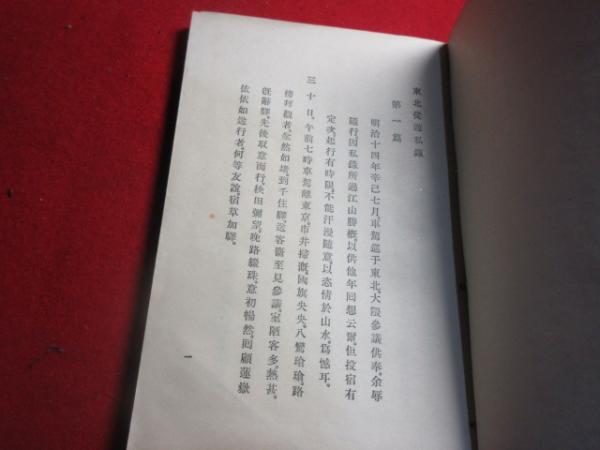 東北從遊私錄
第一篇
明治十四年辛巳七月、車駕巡于東北、大隈參議供奉、余辱
隨行、因私錄所過江山勝槪、以供他年回想云爾、但投宿有
定、次起行有時限、不能汗漫隨意、以恣情於山水、爲憾耳。
三十日、午前七時車駕離東京、市井掃漑、國旗央央、八鸞瑲瑲、路
傍拜觀者、坌然如堵、到千住驛、送客齎至見參議、室陋客多、熱甚、
旣辭驛、先後取意而行、秧田彌望、晚路綴珠、意初暢然、回顧蓮嶽
依依如送行者、何等友誼、宿草加驛。
一